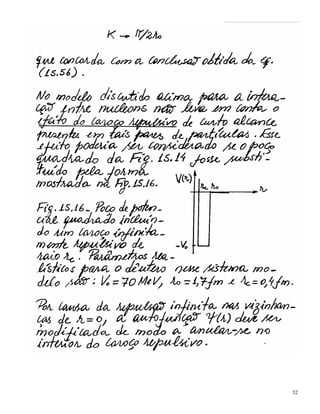 K → π/2r₀
que concorda com a conclusão obtida da eq.
(15.56).
No modelo discutido acima para a intera-
ção entre nucleons não leva em conta o
efeito do caroço repulsivo de curto alcance
presentes em tais pares de partículas. Esse
efeito poderia ser considerado se o poço
quadrado da Fig. 15.14 fosse substi-
tuido pela forma
mostrada na Fig. 15.16.
V(r)
rc r₀
r
-V₀
Fig. 15.16_ Poço de poten-
cial quadrado incluin-
do um caroço infinita-
mente repulsivo de
raio rc. Parâmetros rea-
lísticos para o dêutero nesse sistema mo-
delo são: V₀ = 70 MeV, r₀ = 1,7 fm e rc = 0,4 fm.
Por causa da repulsão infinita nas vizinhan-
ças de r = 0, a autofunção Ψ(r) deve ser
modificada de modo a anular-se no
interior do caroço repulsivo.
52